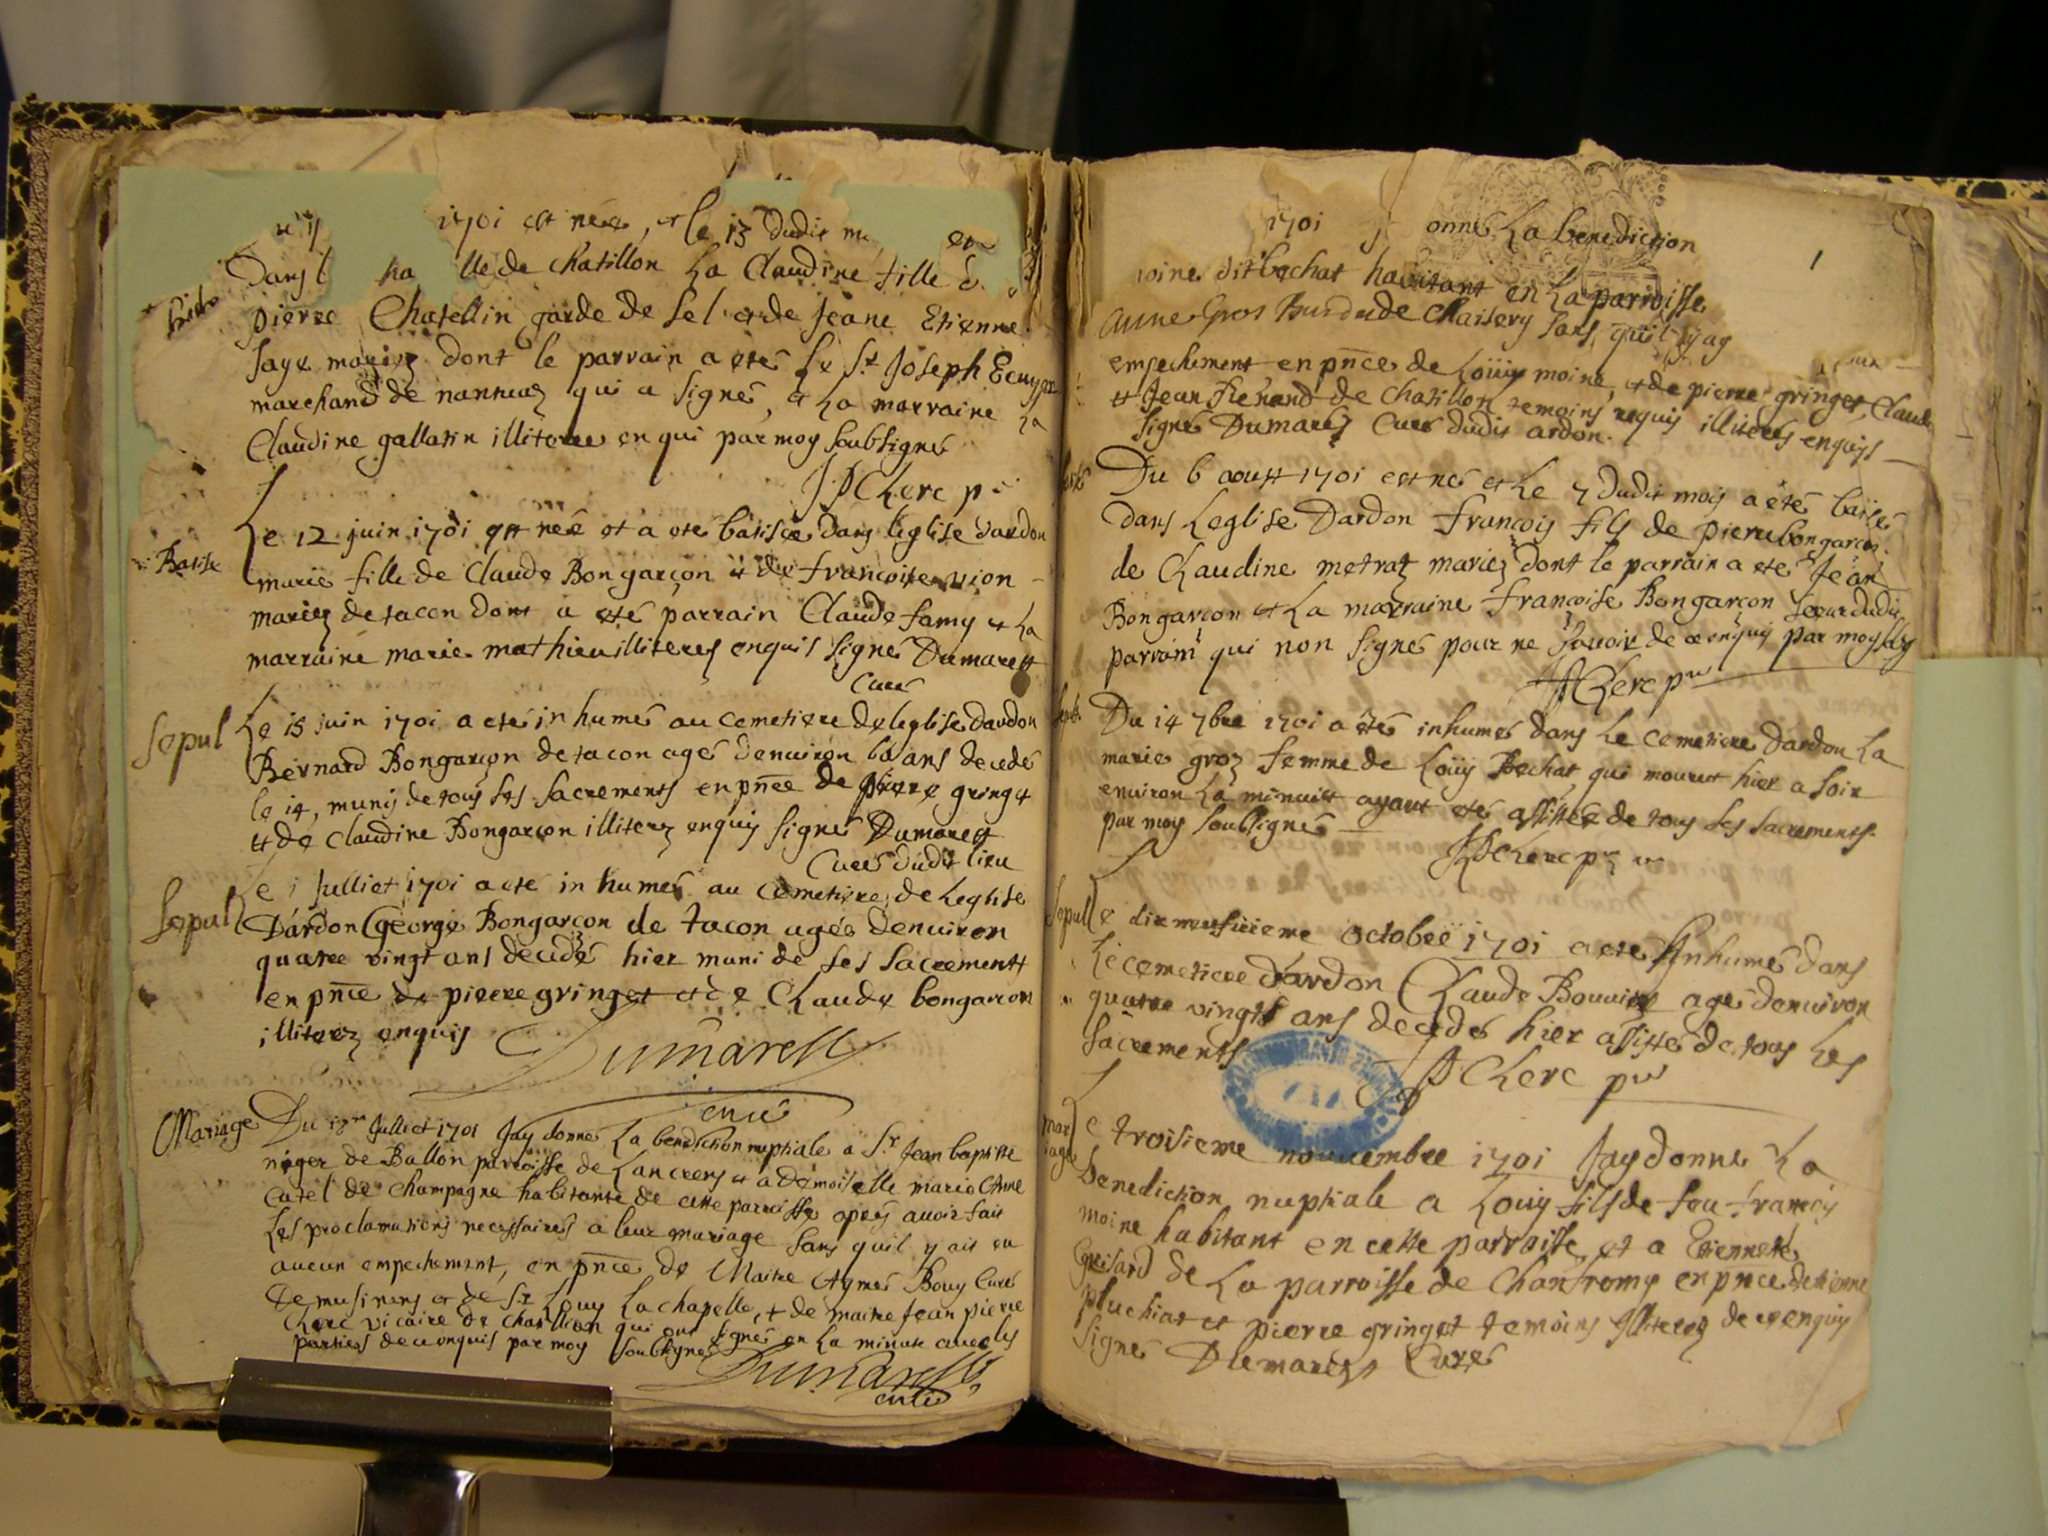 1701 est née, et le 13 dudit
Dans l ha lle de chatillon La Claudine fille
pierre Chatellin garde de sel et de Jeane Etienne
saye mariez dont le parrain a etés Le Sr Joseph Ecuyer
marchand de nantuaz qui a signés, et La marraine La
Claudine gallatin illiteree enqui par moy soubsignés
JP Clerc p
Batise
Le 12 juin 1701 est neé et a ete batisée dans leglise dardon
marie fille de Claude Bongarçon et de francoise vion
mariez de tacon dont a eté parrain Claude famy et La
marraine marie mathieu illiteres enquis signés Dumarest
Curés
Sepul
Le 15 juin 1701 a etés inhumés au cemetiere de leglise dardon
Bernard Bongarçon de tacon agés denviron ans decedés
le 14, munis de tous ses sacrements en pnce de pierre gringet
et de Claudine Bongarcon illiterez enquis signés Dumarest
Curés dudit lieu
Sepul
Le 1 Julliet 1701 a eté inhumés au cemetiere de Leglise
Dardon George Bongarçon de tacon agés denviron
quatre vingt ans decedés hier muni de ses sacrements
en pnce de pierre gringet et de Claude bongarcon
illiterz enquis
Dumarest
curé
Mariage
Du Julliet 1701 Jay donnés La benediction nuptiale a Sr Jean baptiste
niger de Ballon parroisse de Lancrens et a demoiselle marie Anne
Catel de champagne habitante de cette parroisse apres avoir fait
Les proclamations necessaires a leur mariage sans quil y ait eu
aucun empechement, en pnce de Maitre Aymés Bouy Curés
de musinens et de Sr Louy La chapelle, et de maitre Jean pierre
Clerc vicaire de chatillion qui ont signés en La minute avec les
parties de ce enquis par moy soubsignes
Dumarest
curé
1701 onnés La benediction
1
moine dit bechat habitant en La parroisse
anne Gros Burdu de Chaisery sans quil y ay
empechement en pnce de Louy moine, et de pierre gringet, Claud
et Jean Renand de Chatillon temoins requis illiterés enquis
signés Dumarest Curés dudit ardon.
Du 6 aoust 1701 est nés et Le 7 dudit mois a étés batisés
dans Leglise Dardon francois fils de pierre bongarcon
de Claudine metraz mariez dont le parrain a eté Jean
Bongarcon et La marraine francoise Bongarcon soeur dudit
parrain qui non signés pour ne sçavoir de ce enquis par moy
JP Clerc pre
Du 14 7bre 1701 a étés inhumés dans Le cemetiere Dardon La
marie groz femme de Loüy Bechat, qui mourut hier a soir
environ La minuitt ayant etés assistée de tous ses sacrements
par moy soubsignés
JP Clerc p
Sepul
Le dix neuficieme octobre 1701 a ete Inhumés dans
Le cemetiere dardon Claude Bouvier agé denviron
quatre vingts ans decedés hier assistés de tous Les
Sacrements
JP Clerc pre
mariage
Le troisieme nouvembre 1701 Jay donne La
benediction nuptiale a Louy fils de feu francois
moine habitant en cette parroisse et a Etiennete
Grisard de La parroisse de Chanfromy en pnce detienne
pluchiat et pierre gringet temoins illiterez de ce enquis
signés Dumarest Curés